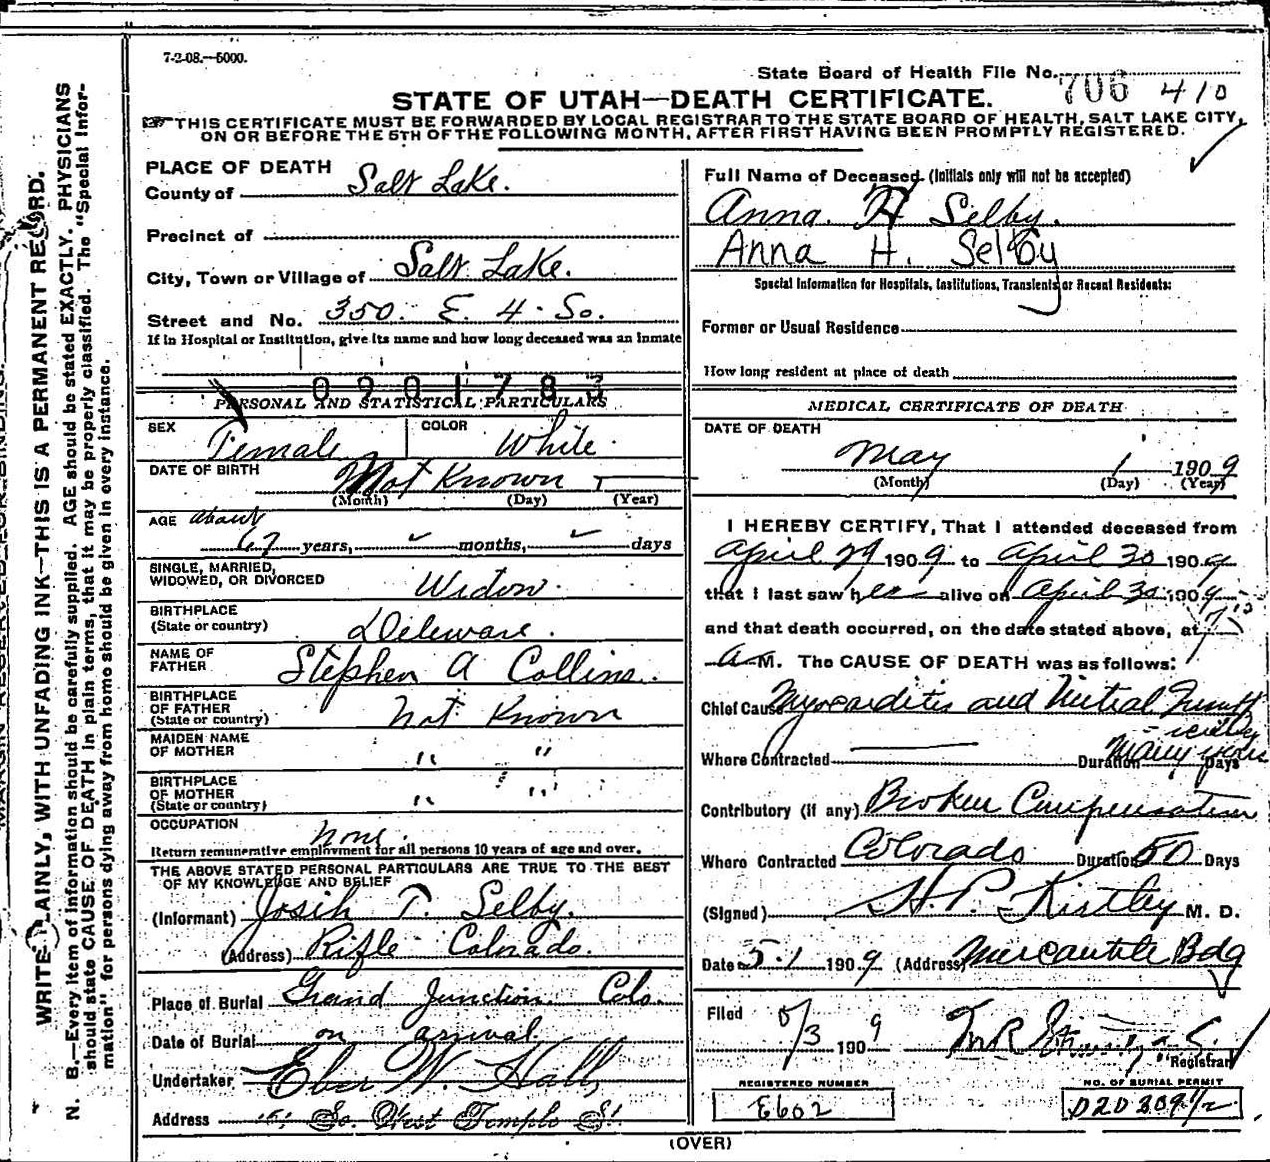 7-2-08.—5000.
State Board of Health File No. 706 410
STATE OF UTAH—DEATH CERTIFICATE.
THIS CERTIFICATE MUST BE FORWARDED BY LOCAL REGISTRAR TO THE STATE BOARD OF HEALTH, SALT LAKE CITY,
ON OR BEFORE THE 5TH OF THE FOLLOWING MONTH, AFTER FIRST HAVING BEEN PROMPTLY REGISTERED.
WRITE PLAINLY, WITH UNFADING INK—THIS IS A PERMANENT RECORD.
N. B.—Every item of information should be carefully supplied. AGE should be stated EXACTLY. PHYSICIANS
should state CAUSE OF DEATH in plain terms, that it may be properly classified. The "Special Infor-
mation" for persons dying away from home should be given in every instance.
PLACE OF DEATH
County of Salt Lake.
Precinct of
City, Town or Village of Salt Lake.
Street and No. 350. E. 4. So.
If in Hospital or Institution, give its name and how long deceased was an inmate
PERSONAL AND STATISTICAL PARTICULARS
SEX Female COLOR White.
DATE OF BIRTH Not Known
(Month) (Day) (Year)
AGE about
67 years, months, days
SINGLE, MARRIED,
WIDOWED, OR DIVORCED Widow.
BIRTHPLACE
(State or country) Deleware.
NAME OF
FATHER Stephen A Collins.
BIRTHPLACE
OF FATHER
(State or country) Not Known
MAIDEN NAME
OF MOTHER " "
BIRTHPLACE
OF MOTHER
(State or country) " "
OCCUPATION none.
Return remunerative employment for all persons 10 years of age and over.
THE ABOVE STATED PERSONAL PARTICULARS ARE TRUE TO THE BEST
OF MY KNOWLEDGE AND BELIEF
(Informant) Josih T. Selby.
(Address) Rifle Colorado.
Place of Burial Grand Junction Colo.
Date of Burial on arrival
Undertaker Eber W. Hall
Address So. West Temple St.
Full Name of Deceased (Initials only will not be accepted)
Anna. H Selby.
Anna H. Selby
Special Information for Hospitals, Institutions, Transients or Recent Residents:
Former or Usual Residence
How long resident at place of death
MEDICAL CERTIFICATE OF DEATH
DATE OF DEATH
May 1 1909
(Month) (Day) (Year)
I HEREBY CERTIFY, That I attended deceased from
April 29 1909 to April 30 1909
that I last saw her alive on April 30 1909
and that death occurred, on the date stated above, at
A M. The CAUSE OF DEATH was as follows:
Chief Cause Myocarditis and Mitral
Where Contracted Duration many years Days
Contributory (if any) Broken Compensation
Where Contracted Colorado Duration 50 Days
(Signed) H. P. Kirtley M. D.
Date 5.1 1909 (Address) Mercantile Bdg
Filed 5/3 1909
Registrar
REGISTERED NUMBER
E602
NO. OF BURIAL PERMIT
(OVER)